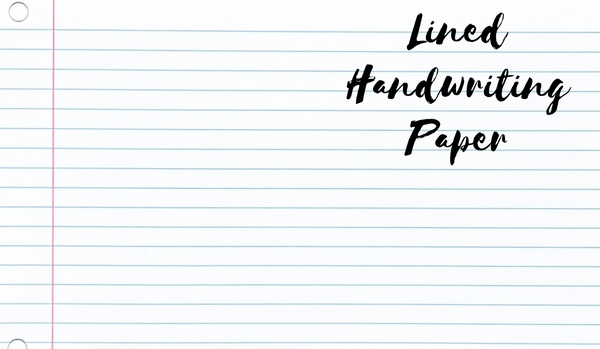 Lined
Handwriting
Paper